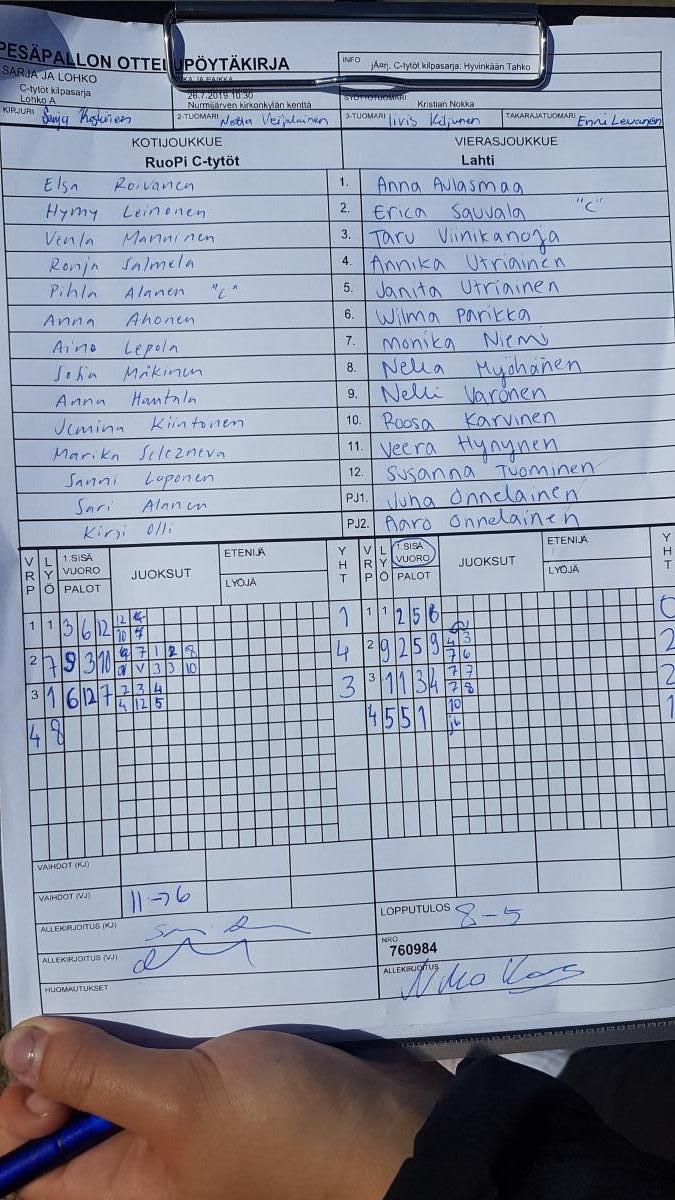 PESÄPALLON OTTELUPÖYTÄKIRJA
INFO jÄørj. C-tytöt kilpasarja: Hyvinkään Tahko
SARJA JA LOHKO
C-tytöt kilpasarja
Lohko A
26.7.2019 10:30
Nurmijärven kirkonkylän kenttä
SYÖTTÖTUOMARI Kristian Nokka
KIRJURI 2-TUOMARI Netta Veijalainen 3-TUOMARI Iivis Kiljunen TAKARAJATUOMARI Enni Levanen
KOTIJOUKKUE VIERASJOUKKUE
RuoPi C-tytöt Lahti
Elsa Roivanen 1. Anna Aulasmaa
Hymy Leinonen 2. Erica Sauvala "C"
Venla Manninen 3. Taru Viinikanoja
Ronja Salmela 4. Annika Utriainen
Pihla Alanen "C" 5. Janita Utriainen
Anna Ahonen 6. Wilma Parikka
Aino Lepola 7. Monika Niemi
Sofia Mäkinen 8. Nella Myöhänen
Anna Hantala 9. Nelli Varonen
Jemina Kiintonen 10. Roosa Karvinen
Marika Selezneva 11. Veera Hynynen
Sanni Loponen 12. Susanna Tuominen
Sari Alanen PJ1. Juha Onnelainen
Kirsi Olli PJ2. Aaro Onnelainen
VRP LYÖ 1.SISÄ VUORO PALOT JUOKSUT ETENIJÄ LYÖJÄ YHT VRP LYÖ 1.SISÄ VUORO PALOT JUOKSUT ETENIJÄ LYÖJÄ YHT
1 1 3 6 12 12 10 1 1 1 2 5 6 0
2 7 9 3 10 7 1 2 8 V 3 3 10 4 2 9 2 5 9 4 3 7 6 2
3 1 6 12 7 2 3 4 4 12 5 3 3 1 1 3 4 7 7 7 8 2
4 8 4 5 5 1 10 1
VAIHDOT (KJ)
VAIHDOT (VJ) 11→6
ALLEKIRJOITUS (KJ) LOPPUTULOS 8-5
ALLEKIRJOITUS (VJ) NRO 760984
HUOMAUTUKSET ALLEKIRJOITUS